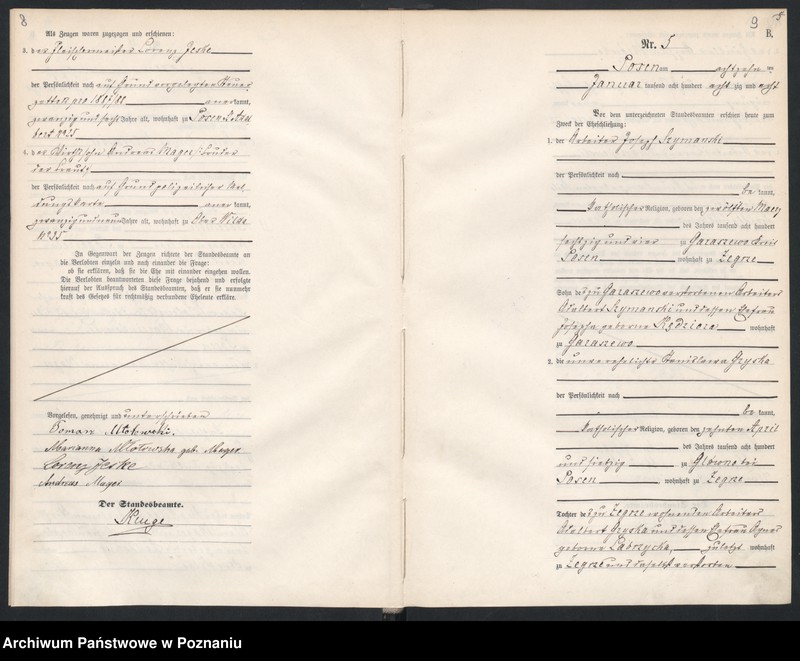 8
Als Zeugen waren zugezogen und erschienen:
3. der Fleischermeister Lorenz Jeske
der Persönlichkeit nach auf Grund vorgelegter Steuer
zettel pro 1887/88 aner kannt,
zwanzig und sechs Jahre alt, wohnhaft zu Posen St. Adal
bert No 25
4. der Wirthssohn Andreas Mager, Bruder
der Braut,
der Persönlichkeit nach auf Grund polizeilicher Mel
dungskarte aner kannt,
zwanzig und neun Jahre alt, wohnhaft zu Ober Wilda
No 35
In Gegenwart der Zeugen richtete der Standesbeamte an
die Verlobten einzeln und nach einander die Frage:
ob sie erklären, daß sie die Ehe mit einander eingehen wollen.
Die Verlobten beantworteten diese Frage bejahend und erfolgte
hierauf der Ausspruch des Standesbeamten, daß er sie nunmehr
kraft des Gesetzes für rechtmäßig verbundene Eheleute erkläre.
Vorgelesen, genehmigt und unterschrieben
Roman Młotowski.
Marianna Młotowska geb. Mager
Lorenz Jeske
Andreas Mager
Der Standesbeamte.
Kruge
9
B.
Nr. 5
Posen am achtzehn ten
Januar tausend acht hundert acht zig und acht
Vor dem unterzeichneten Standesbeamten erschienen heute zum
Zweck der Eheschließung:
1. der Arbeiter Josef Szymanski
der Persönlichkeit nach
be kannt,
katholischer Religion, geboren den zwölften Maerz
des Jahres tausend acht hundert
sechzig und vier zu Garaszewo Kreis
Posen wohnhaft zu Zegrze
Sohn des zu Garaszewo verstorbenen Arbeiters
Adalbert Szymanski und dessen Ehefrau
Josepha geborne wohnhaft
zu Garaszewo
2. die unverehelichte Stanislawa Gzyska
der Persönlichkeit nach
be kannt,
katholischer Religion, geboren den zehnten April
des Jahres tausend acht hundert
und siebzig zu Główno bei
Posen wohnhaft zu Zegrze
Tochter des zu Zegrze wohnenden Arbeiters
Adalbert Gzyska und dessen Ehefrau Agnes
geborne zuletzt wohnhaft
zu Zegrze und daselbst verstorben
Archiwum Państwowe w Poznaniu